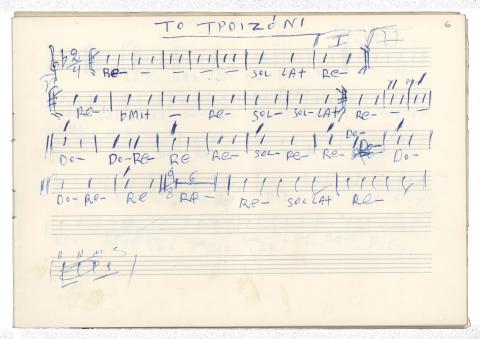 ΤΟ ΤΡΟΙΖόΝΙ
6
I
RE- - - - - SOL LA+ RE-
RE- bMI+ - RE- SOL- SOL-LA+ RE- - -
DO-
DO- DO-RE- RE RE- SOL- RE- RE- DO-
DO- RE- RE RE- RE- SOL LA+ RE-